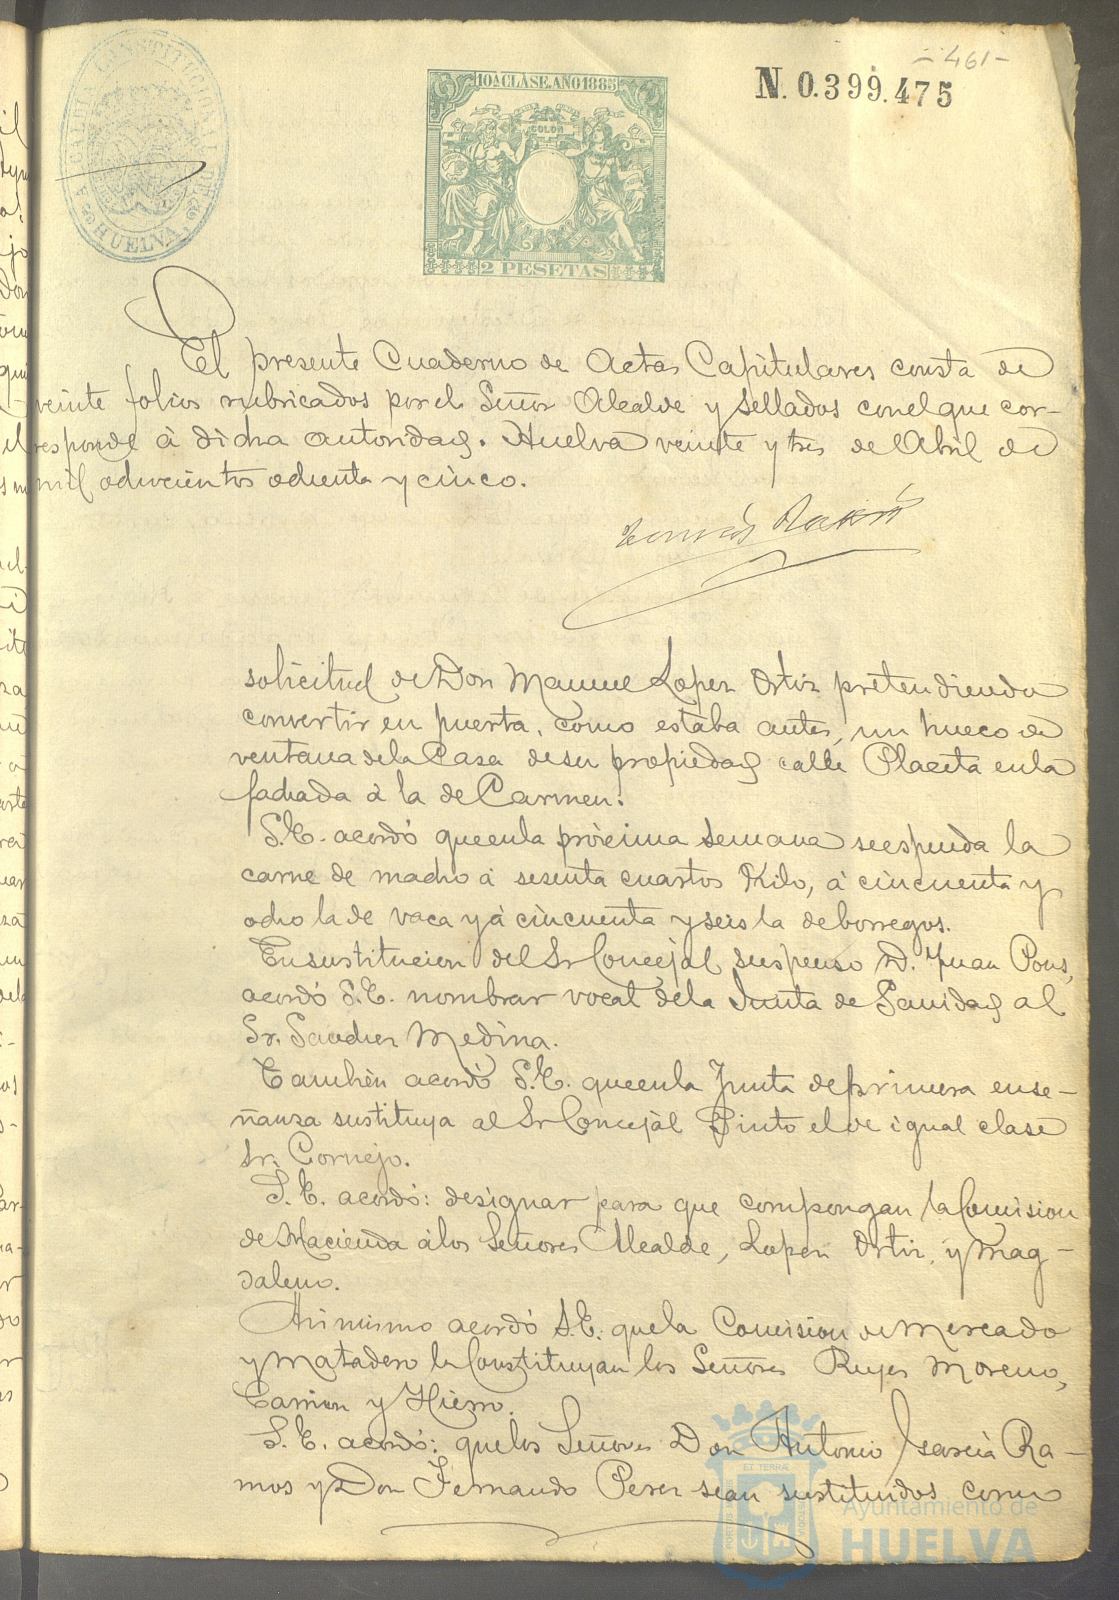 -461-
ALCALDIA CONSTITUCIONAL DE HUELVA
10ª CLASE. AÑO 1885
COLON
2 PESETAS
N. 0.399.475
El presente Cuaderno de Actas Capitulares consta de
veinte folios rubricados por el Señor Alcalde y sellados con el que cor-
responde á dicha autoridad. Huelva veinte y tres de Abril de
mil ochocientos ochenta y cinco.
solicitud de Don Manuel Lopez Ortiz pretendiendo
convertir en puerta, como estaba antes, un hueco de
ventana de la Casa de su propiedad calle Placeta en la
fachada á la de Carmen.
S.E. acordó que en la próxima semana se espenda la
carne de macho á sesenta cuartos Kilo, á cincuenta y
ocho la de vaca y á cincuenta y seis la de borregos.
En sustitucion del Sr Concejal suspenso D. Juan Pons,
acordó S.E. nombrar vocal de la Junta de Sanidad al
Sr. Sanchez Medina.
Tambien acordó S.E. que en la Junta de primera ense-
ñanza sustituya al Sr Concejal Pinto el de igual clase
Sr. Cornejo.
S.E. acordó: designar para que compongan la Comision
de Hacienda á los Señores Alcalde, Lopez Ortiz, y Mag-
daleno.
Asi mismo acordó S.E. que la Comision de Mercado
y Matadero la Constituyan los Señores Reyes Moreno,
Carrion y Hierro.
S.E. acordó: que los Señores Don Antonio Garcia Ra-
mos y Don Fernando Perez sean sustituidos como
Ayuntamiento de
HUELVA